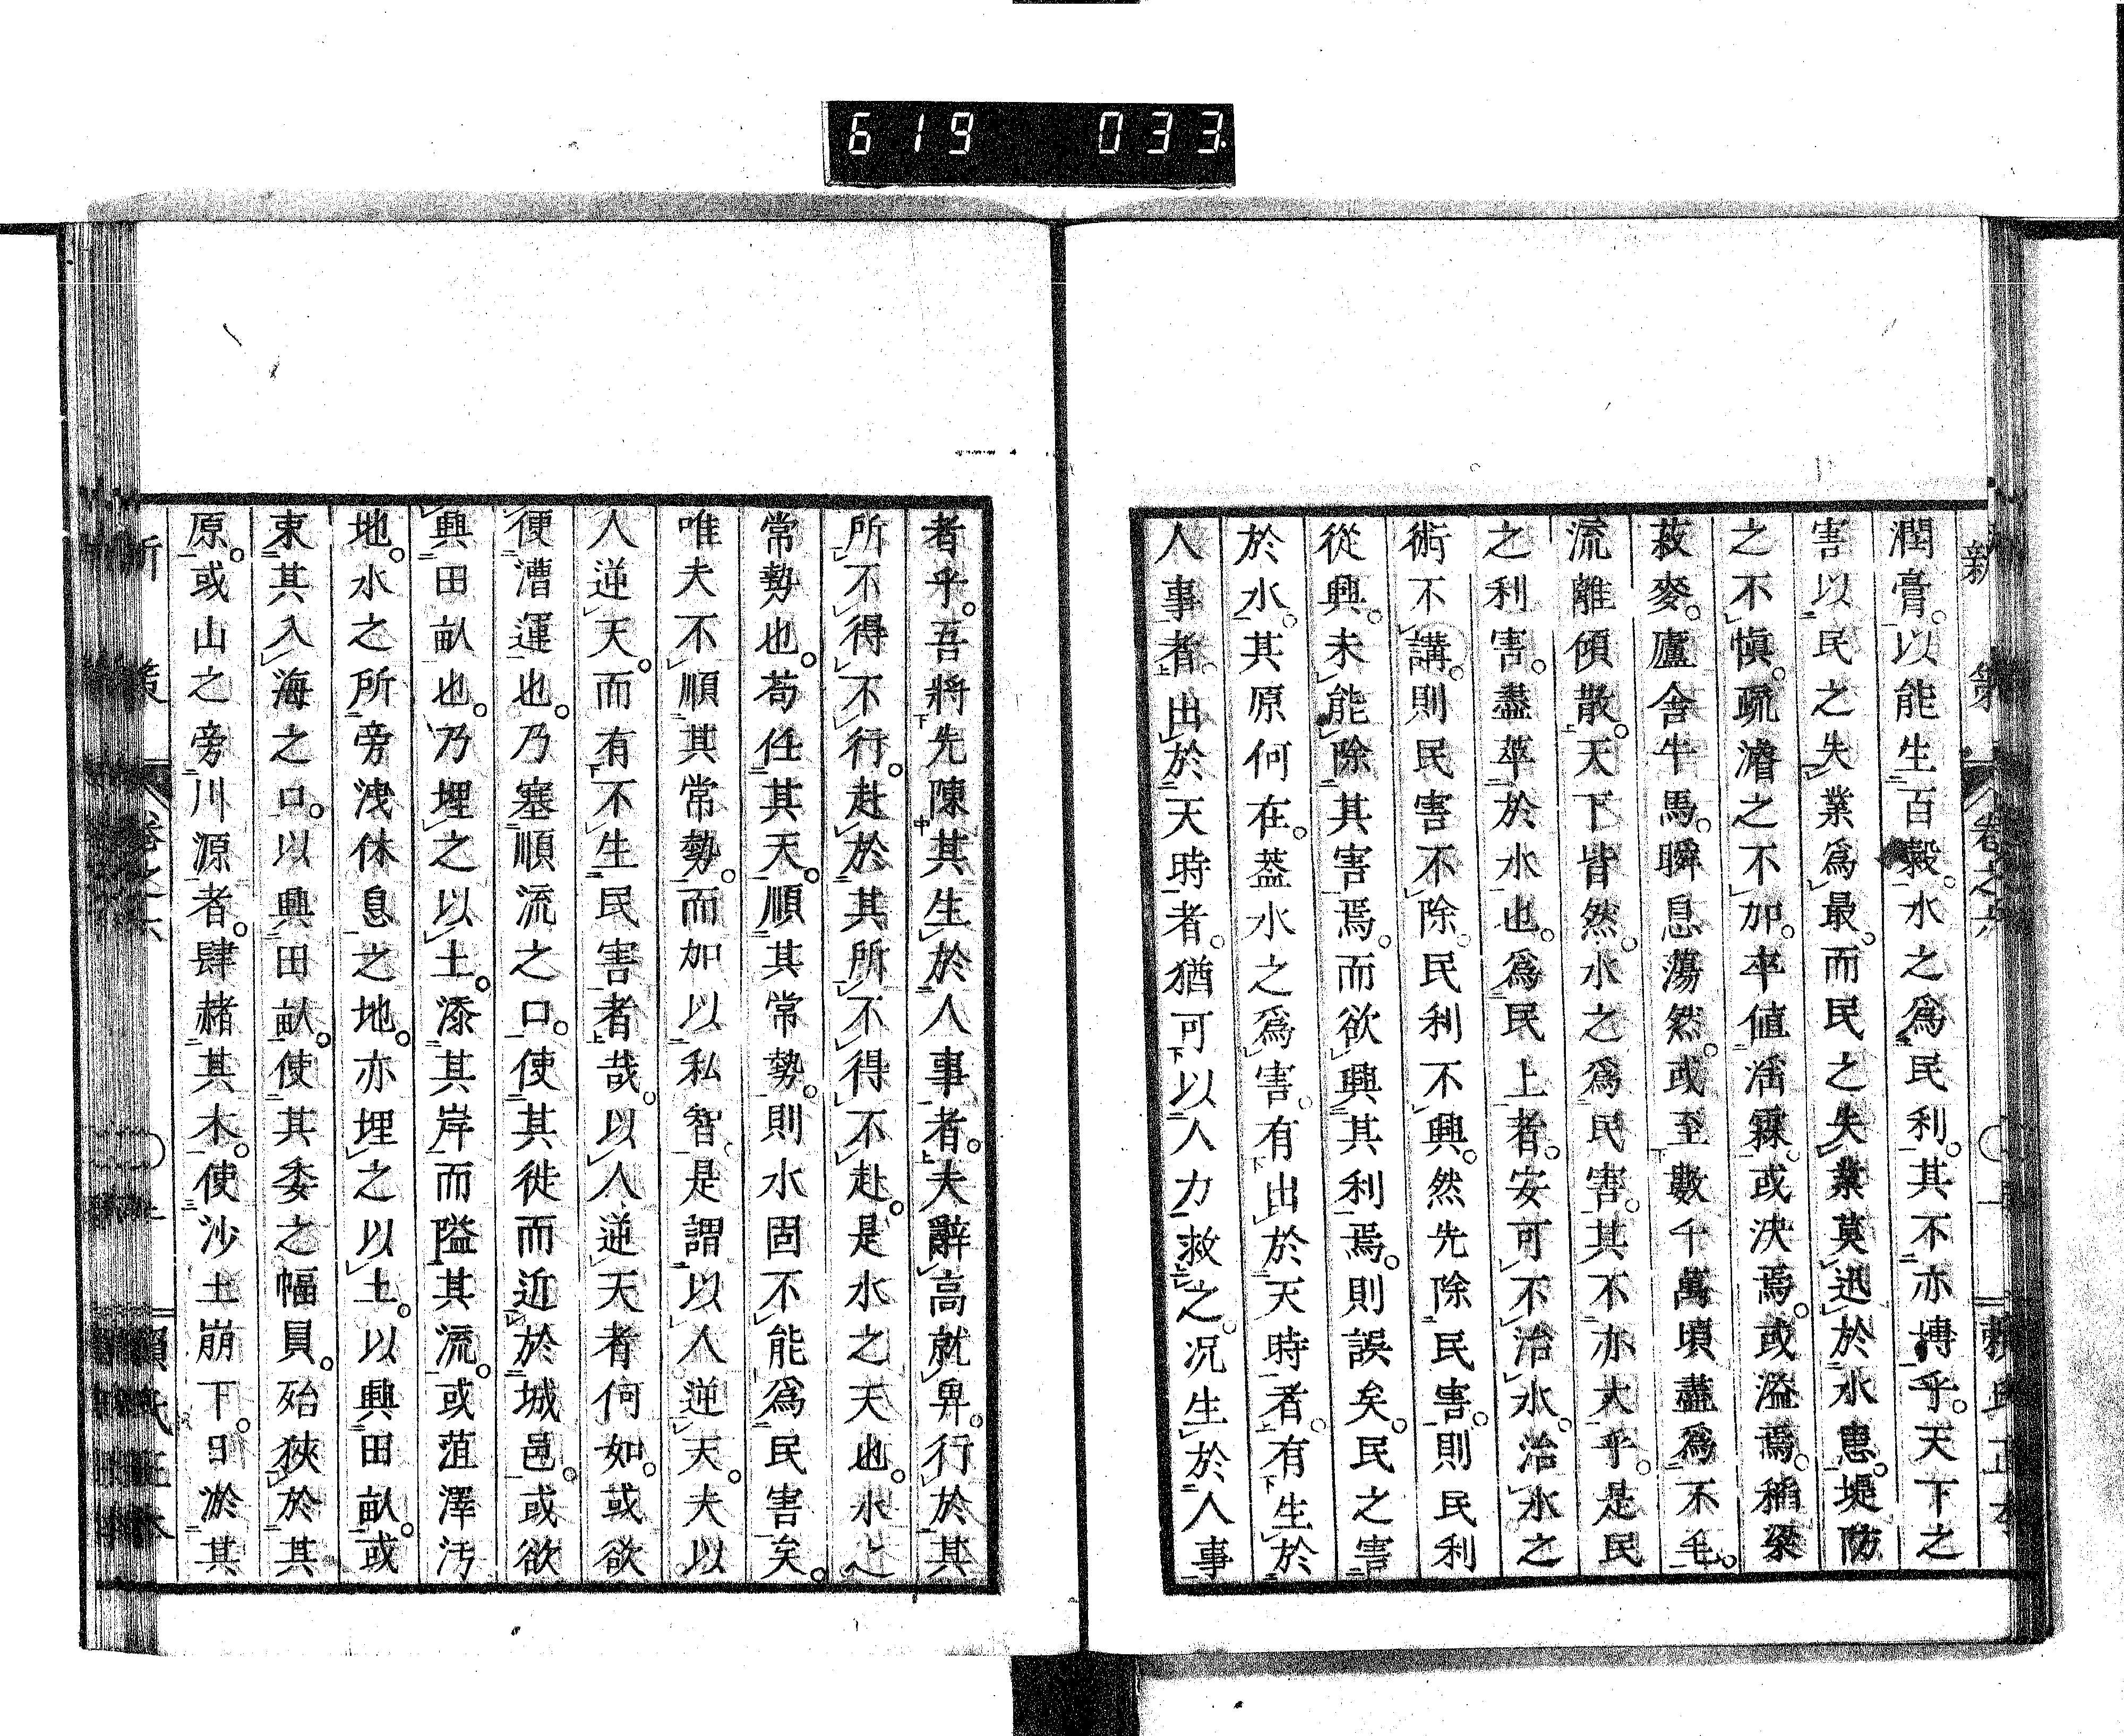 619 033
新策 卷之六 賴氏正本
潤膏。以能生百穀。水之爲民利。其不亦博乎。天下之
害以民之失業爲最。而民之失業莫迅於水患。堤防
之不愼。疏濬之不加。卒値淫霖。或決焉。或溢焉。稻粱
菽麥。廬舍牛馬。瞬息蕩然。或至數千萬頃盡爲不毛。
流離傾散。天下皆然。水之爲民害。其不亦大乎。是民
之利害。盡萃於水也。爲民上者。安可不治水。治水之
術不講。則民害不除。民利不興。然先除民害。則民利
從興。未能除其害焉。而欲興其利焉。則誤矣。民之害
於水。其原何在。蓋水之爲害。有出於天時者。有生於
人事者。出於天時者。猶可以人力救之。况生於人事
者乎。吾將先陳其生於人事者。夫辭高就卑。行於其
所不得不行。赴於其所不得不赴。是水之天也。水之
常勢也。苟任其天。順其常勢。則水固不能爲民害矣。
唯夫不順其常勢。而加以私智。是謂以人逆天。夫以
人逆天。而有不生民害者哉。以人逆天者何如。或欲
便漕運也。乃塞順流之口。使其徙而近於城邑。或欲
興田畝也。乃埋之以土。漆其岸而隘其流。或菹澤汚
地。水之所旁洩休息之地。亦埋之以土。以興田畝。或
束其入海之口。以興田畝。使其委之幅員。殆狹於其
原。或山之旁川源者。肆赭其木。使沙土崩下。日淤其
新策 卷之六 賴氏正本